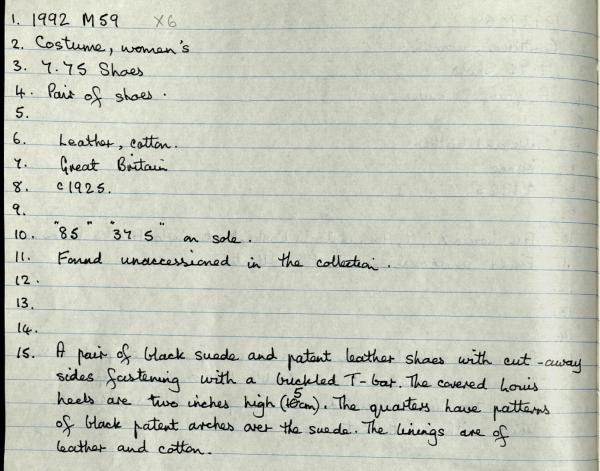 1. 1992 M59 X6
2. Costume, women's
3. 7.75 Shoes
4. Pair of shoes.
5.
6. Leather, cotton.
7. Great Britain
8. c1925.
9.
10. "85" "37 5" on sole.
11. Found unaccessioned in the collection.
12.
13.
14.
15. A pair of black suede and patent leather shoes with cut-away
sides fastening with a buckled T-bar. The covered Louis
heels are two inches high (5cm). The quarters have patterns
of black patent arches over the suede. The linings are of
leather and cotton.